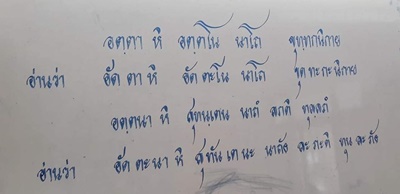 อตฺตา หิ อตฺตโน นาโถ ขุทฺทกนิกาย
อ่านว่า อัต ตา หิ อัต ตะโน นาโถ ขุท ทะ กะ นิกาย
อตฺตนา หิ สุทนฺเตน นาถํ ลภติ ทุลฺลภํ
อ่านว่า อัต ตะ นา หิ สุทัน เต นะ นาถัง ละ ภะติ ทุน ละ ภัง